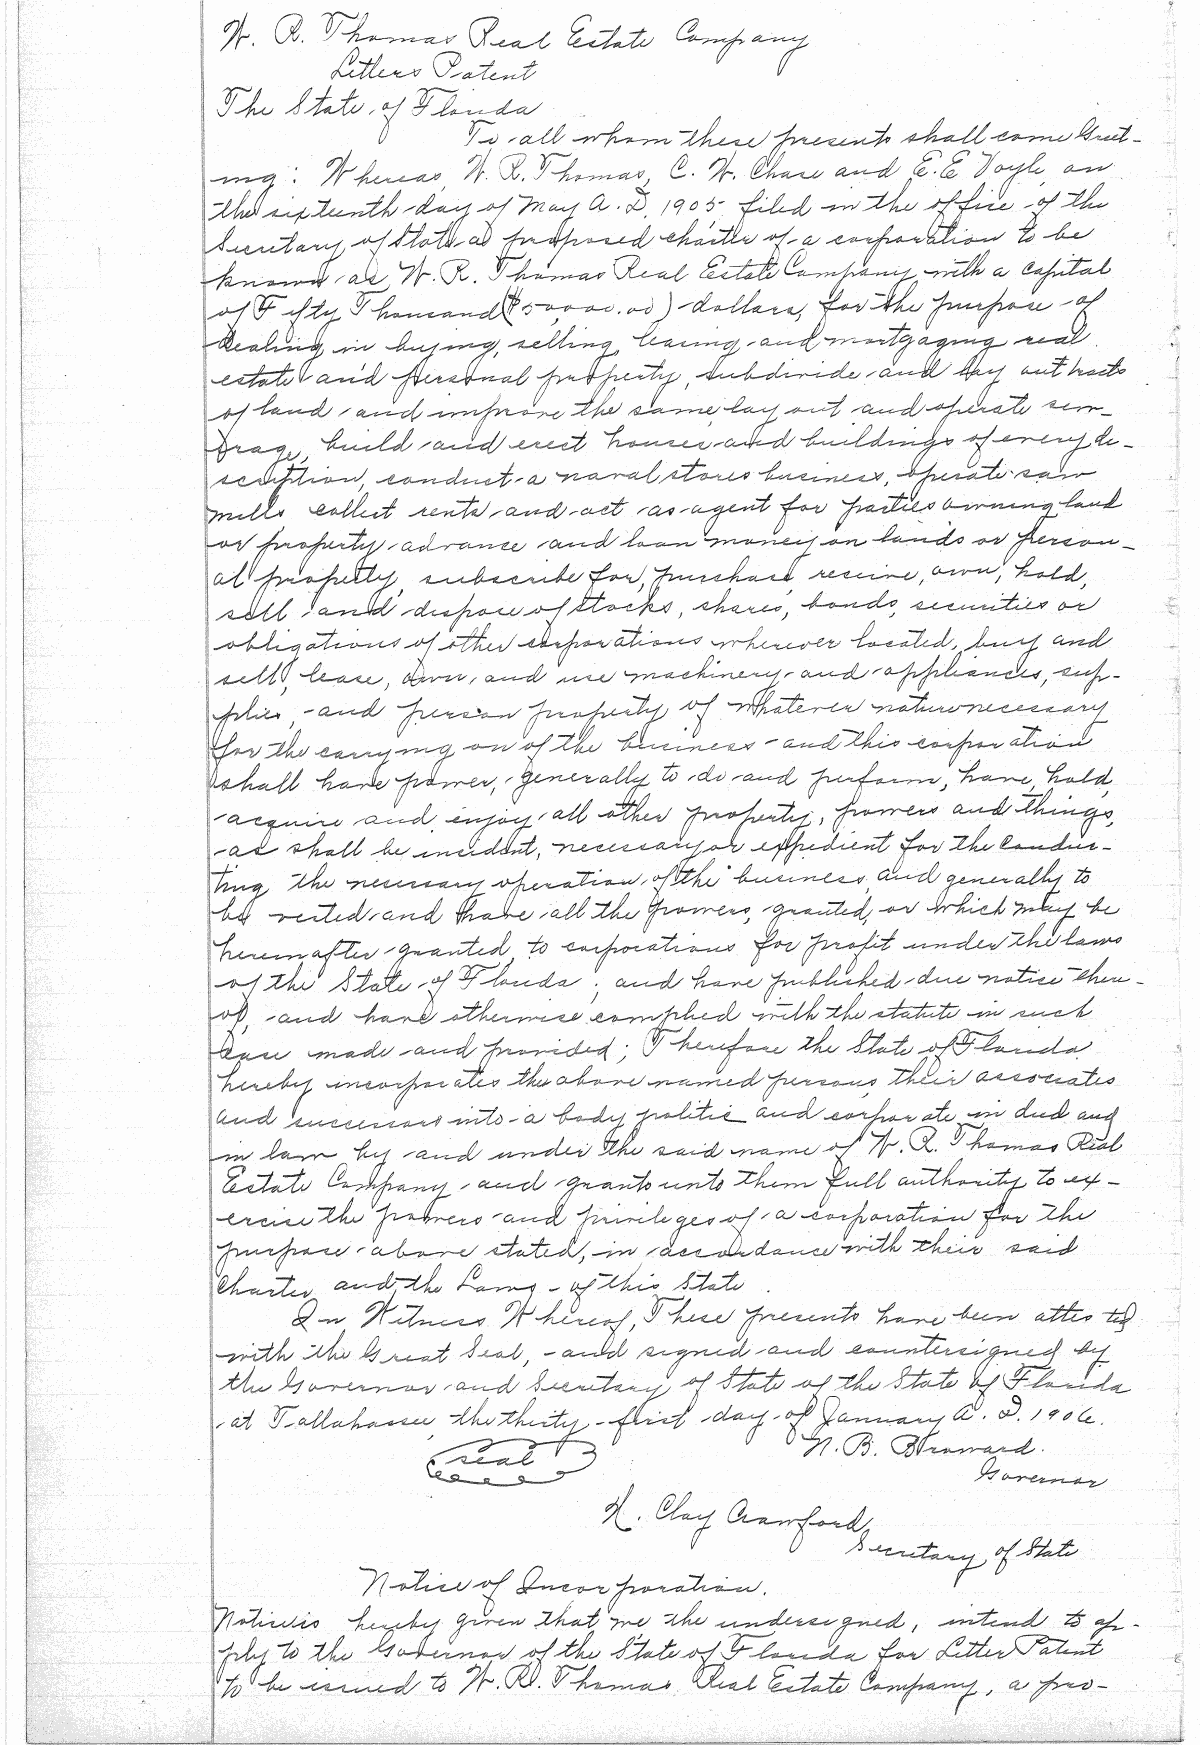 W. R. Thomas Real Estate Company
Letters Patent
The State of Florida
To all whom these presents shall come Greet-
ing: Whereas, W. R. Thomas, C. W. Chase and E. E Voyle, on
the sixteenth day of May A. D. 1905 filed in the office of the
Secretary of State a proposed charter of a corporation to be
known as W. R. Thomas Real Estate Company with a capital
of Fifty Thousand ($50,000.00) dollars, for the purpose of
dealing in buying, selling, leasing and mortgaging real
estate and personal property, subdivide and lay out tracts
of land and improve the same, lay out and operate sew-
erage, build and erect houses and buildings of every de-
scription, conduct a naval stores business, operate saw
mills collect rents and act as agent for parties owning land
or property advance and loan money on lands or person-
al property, subscribe for, purchase, receive, own, hold,
sell and dispose of stocks, shares, bonds, securities or
obligations of other corporations wherever located, buy and
sell, lease, own, and use machinery and appliances, sup-
plies, and person property of whatever nature necessary
for the carrying on of the business and this corporation
shall have power, generally to do and perform, have, hold,
acquire and enjoy all other property, powers and things,
as shall be incident, necessary or expedient for the conduc-
ting the necessary operation of the business, and generally to
be vested and have all the powers, granted, or which may be
hereinafter granted to corporations for profit under the laws
of the State of Florida; and have published due notice there-
of, and have otherwise complied with the statute in such
case made and provided; Therefore the State of Florida
hereby incorporates the above named persons, their associates
and successors into a body politic and corporate in deed and
in law by and under the said name of W. R. Thomas Real
Estate Company and grants unto them full authority to ex-
ercise the powers and privileges of a corporation for the
purpose above stated, in accordance with their said
Charter and the Laws of this State
In Witness Whereof, These presents have been attested
with the Great Seal, and signed and countersigned by
the Governor and Secretary of State of the State of Florida
at Tallahassee, the thirty-first day of January A. D. 1906.
N. B. Broward.
seal
Governor
H. Clay Crawford,
Secretary of State
Notice of Incorporation.
Notice is hereby given that we the undersigned, intend to ap-
ply to the Governor of the State of Florida for Letter Patent
to be issued to W. R. Thomas Real Estate Company, a pro-